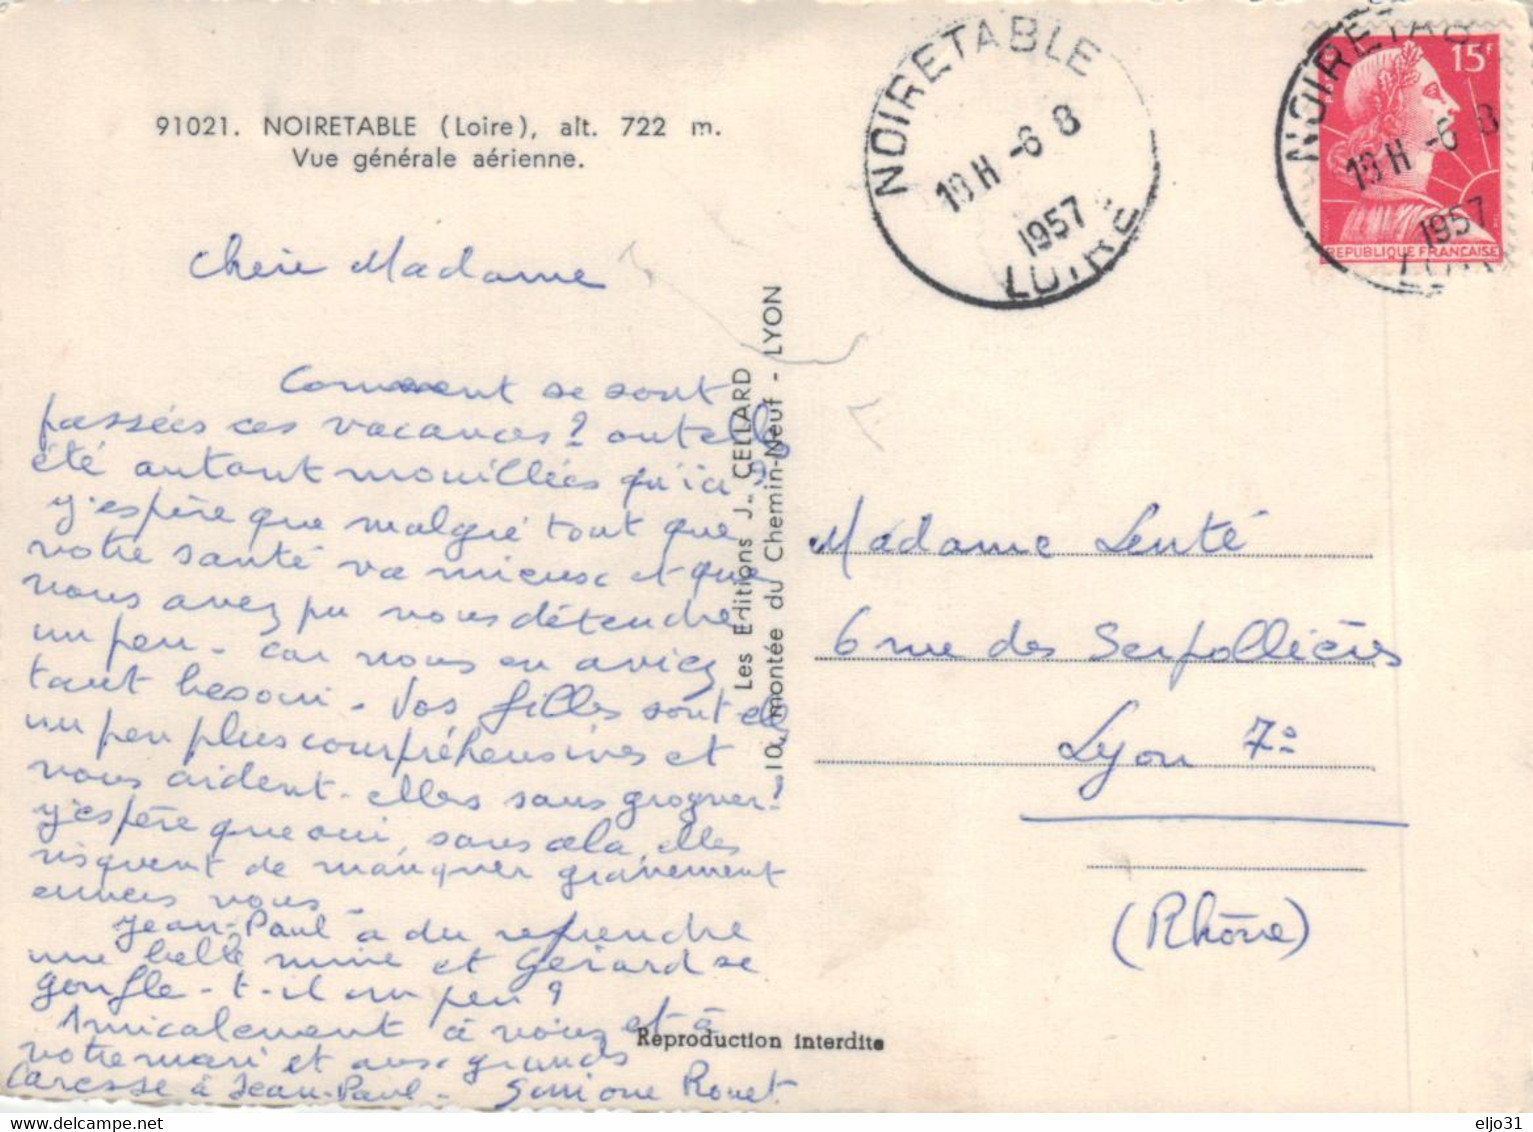 91021. NOIRETABLE (Loire), alt. 722 m.
Vue générale aérienne.
Chère Madame
Comment se sont
passées ces vacances? ont elles
été autant mouillées qu'ici ?
J'espère que malgré tout que
votre santé va mieux et que
vous avez pu vous détendre
un peu - car vous en aviez
tant besoin - Vos filles sont elles
un peu plus compréhensives et
vous aident-elles sans grogner!
J'espère que oui, sans cela, elles
risquent de manquer gravement
envers vous -
Jean-Paul a du reprendre
une belle mine et Gérard se
gonfle-t-il un peu?
Amicalement à vous et à
votre mari et aux grands
Caresse à Jean-Paul - Simone Rouet
Les Editions J. CELLARD
10, montée du Chemin-Neuf - LYON
Reproduction interdite
NOIRETABLE
18 H -6 8
1957
LOIRE
NOIRETAB
18 H -6 8
1957
15F
REPUBLIQUE FRANÇAISE
Madame Lenté
6 rue des Serpollières
Lyon 7e
(Rhône)
eljo31